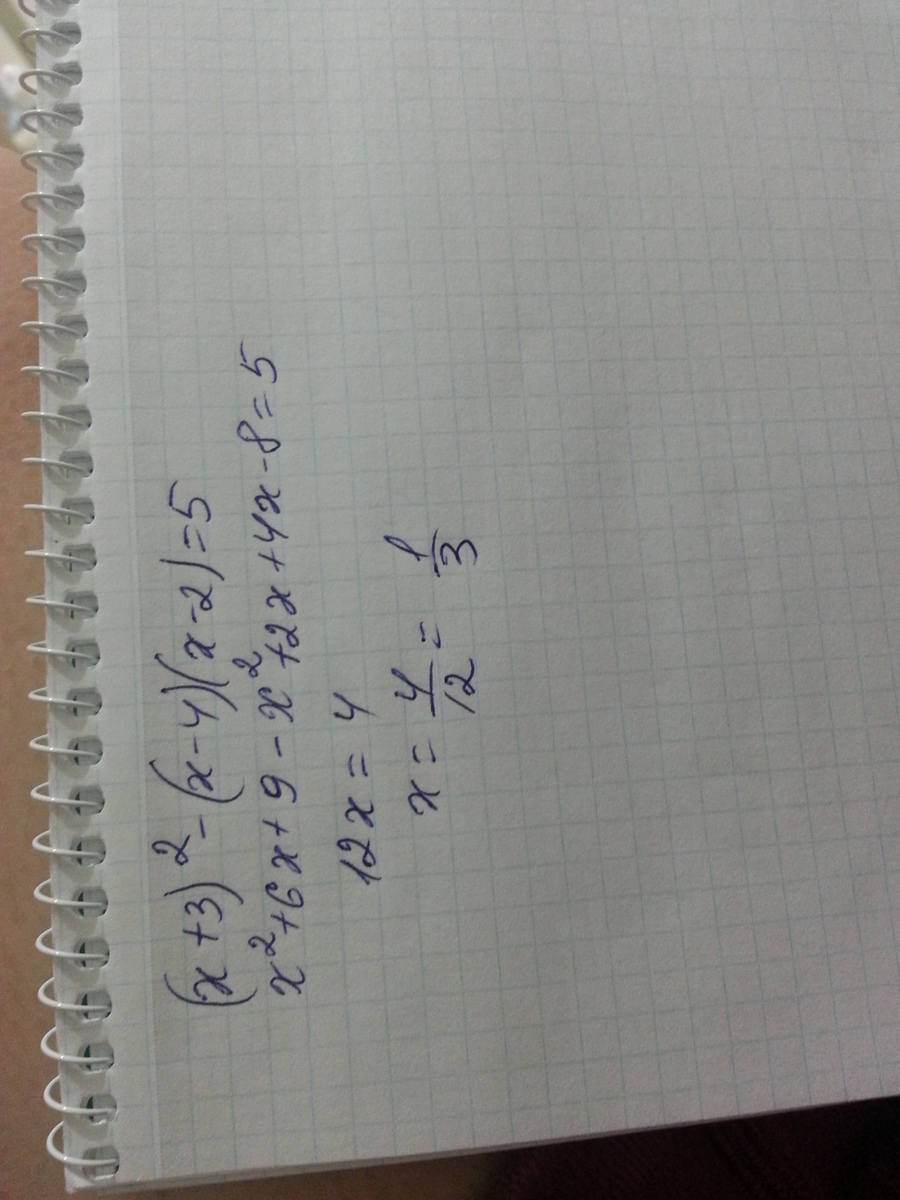 (x+3)²-(x-4)(x-2)=5
x²+6x+9-x²+2x+4x-8=5
12x=4
x=4/12=1/3